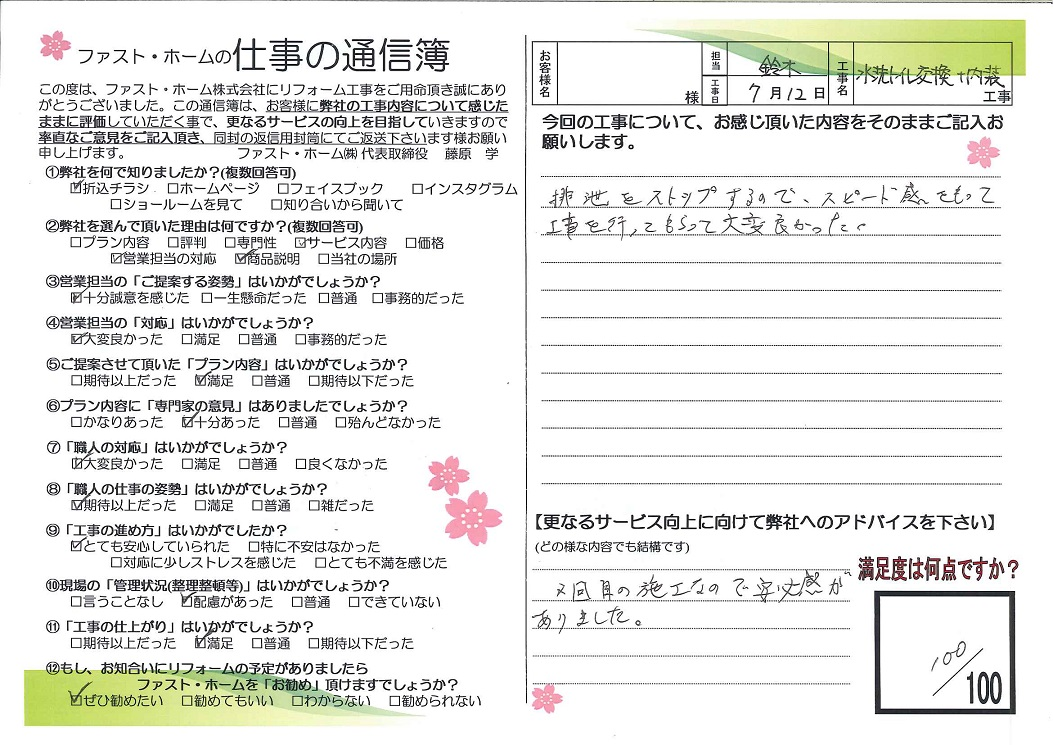 ファスト・ホームの仕事の通信簿
この度は、ファスト・ホーム株式会社にリフォーム工事をご用命頂き誠にあり
がとうございました。この通信簿は、お客様に弊社の工事内容について感じた
ままに評価していただく事で、更なるサービスの向上を目指していきますので
率直なご意見をご記入頂き、同封の返信用封筒にてご返送下さいます様お願い
申し上げます。 ファスト・ホーム㈱ 代表取締役 藤原 学
①弊社を何で知りましたか？(複数回答可)
☑折込チラシ □ホームページ □フェイスブック □インスタグラム
□ショールームを見て □知り合いから聞いて
②弊社を選んで頂いた理由は何ですか？(複数回答可)
□プラン内容 □評判 □専門性 ☑サービス内容 □価格
☑営業担当の対応 ☑商品説明 □当社の場所
③営業担当の「ご提案する姿勢」はいかがでしょうか？
☑十分誠意を感じた □一生懸命だった □普通 □事務的だった
④営業担当の「対応」はいかがでしょうか？
☑大変良かった □満足 □普通 □事務的だった
⑤ご提案させて頂いた「プラン内容」はいかがでしょうか？
□期待以上だった ☑満足 □普通 □期待以下だった
⑥プラン内容に「専門家の意見」はありましたでしょうか？
□かなりあった ☑十分あった □普通 □殆んどなかった
⑦「職人の対応」はいかがでしょうか？
☑大変良かった □満足 □普通 □良くなかった
⑧「職人の仕事の姿勢」はいかがでしょうか？
☑期待以上だった □満足 □普通 □雑だった
⑨「工事の進め方」はいかがでしたか？
☑とても安心していられた □特に不安はなかった
□対応に少しストレスを感じた □とても不満を感じた
⑩現場の「管理状況(整理整頓等)」はいかがでしょうか？
□言うことなし ☑配慮があった □普通 □できていない
⑪「工事の仕上がり」はいかがでしょうか？
□期待以上だった ☑満足 □普通 □期待以下だった
⑫もし、お知合いにリフォームの予定がありましたら
ファスト・ホームを「お勧め」頂けますでしょうか？
☑ぜひ勧めたい □勧めてもいい □わからない □勧められない
お客様名 様 担当 鈴木
工事日 7月12日
工事名 水洗トイレ交換+内装 工事
今回の工事について、お感じ頂いた内容をそのままご記入お
願いします。
排泄をストップするので、スピード感をもって
工事を行ってもらって大変良かった。
【更なるサービス向上に向けて弊社へのアドバイスを下さい】
(どの様な内容でも結構です)
2回目の施工なので安心感が
ありました。
満足度は何点ですか？
100/100